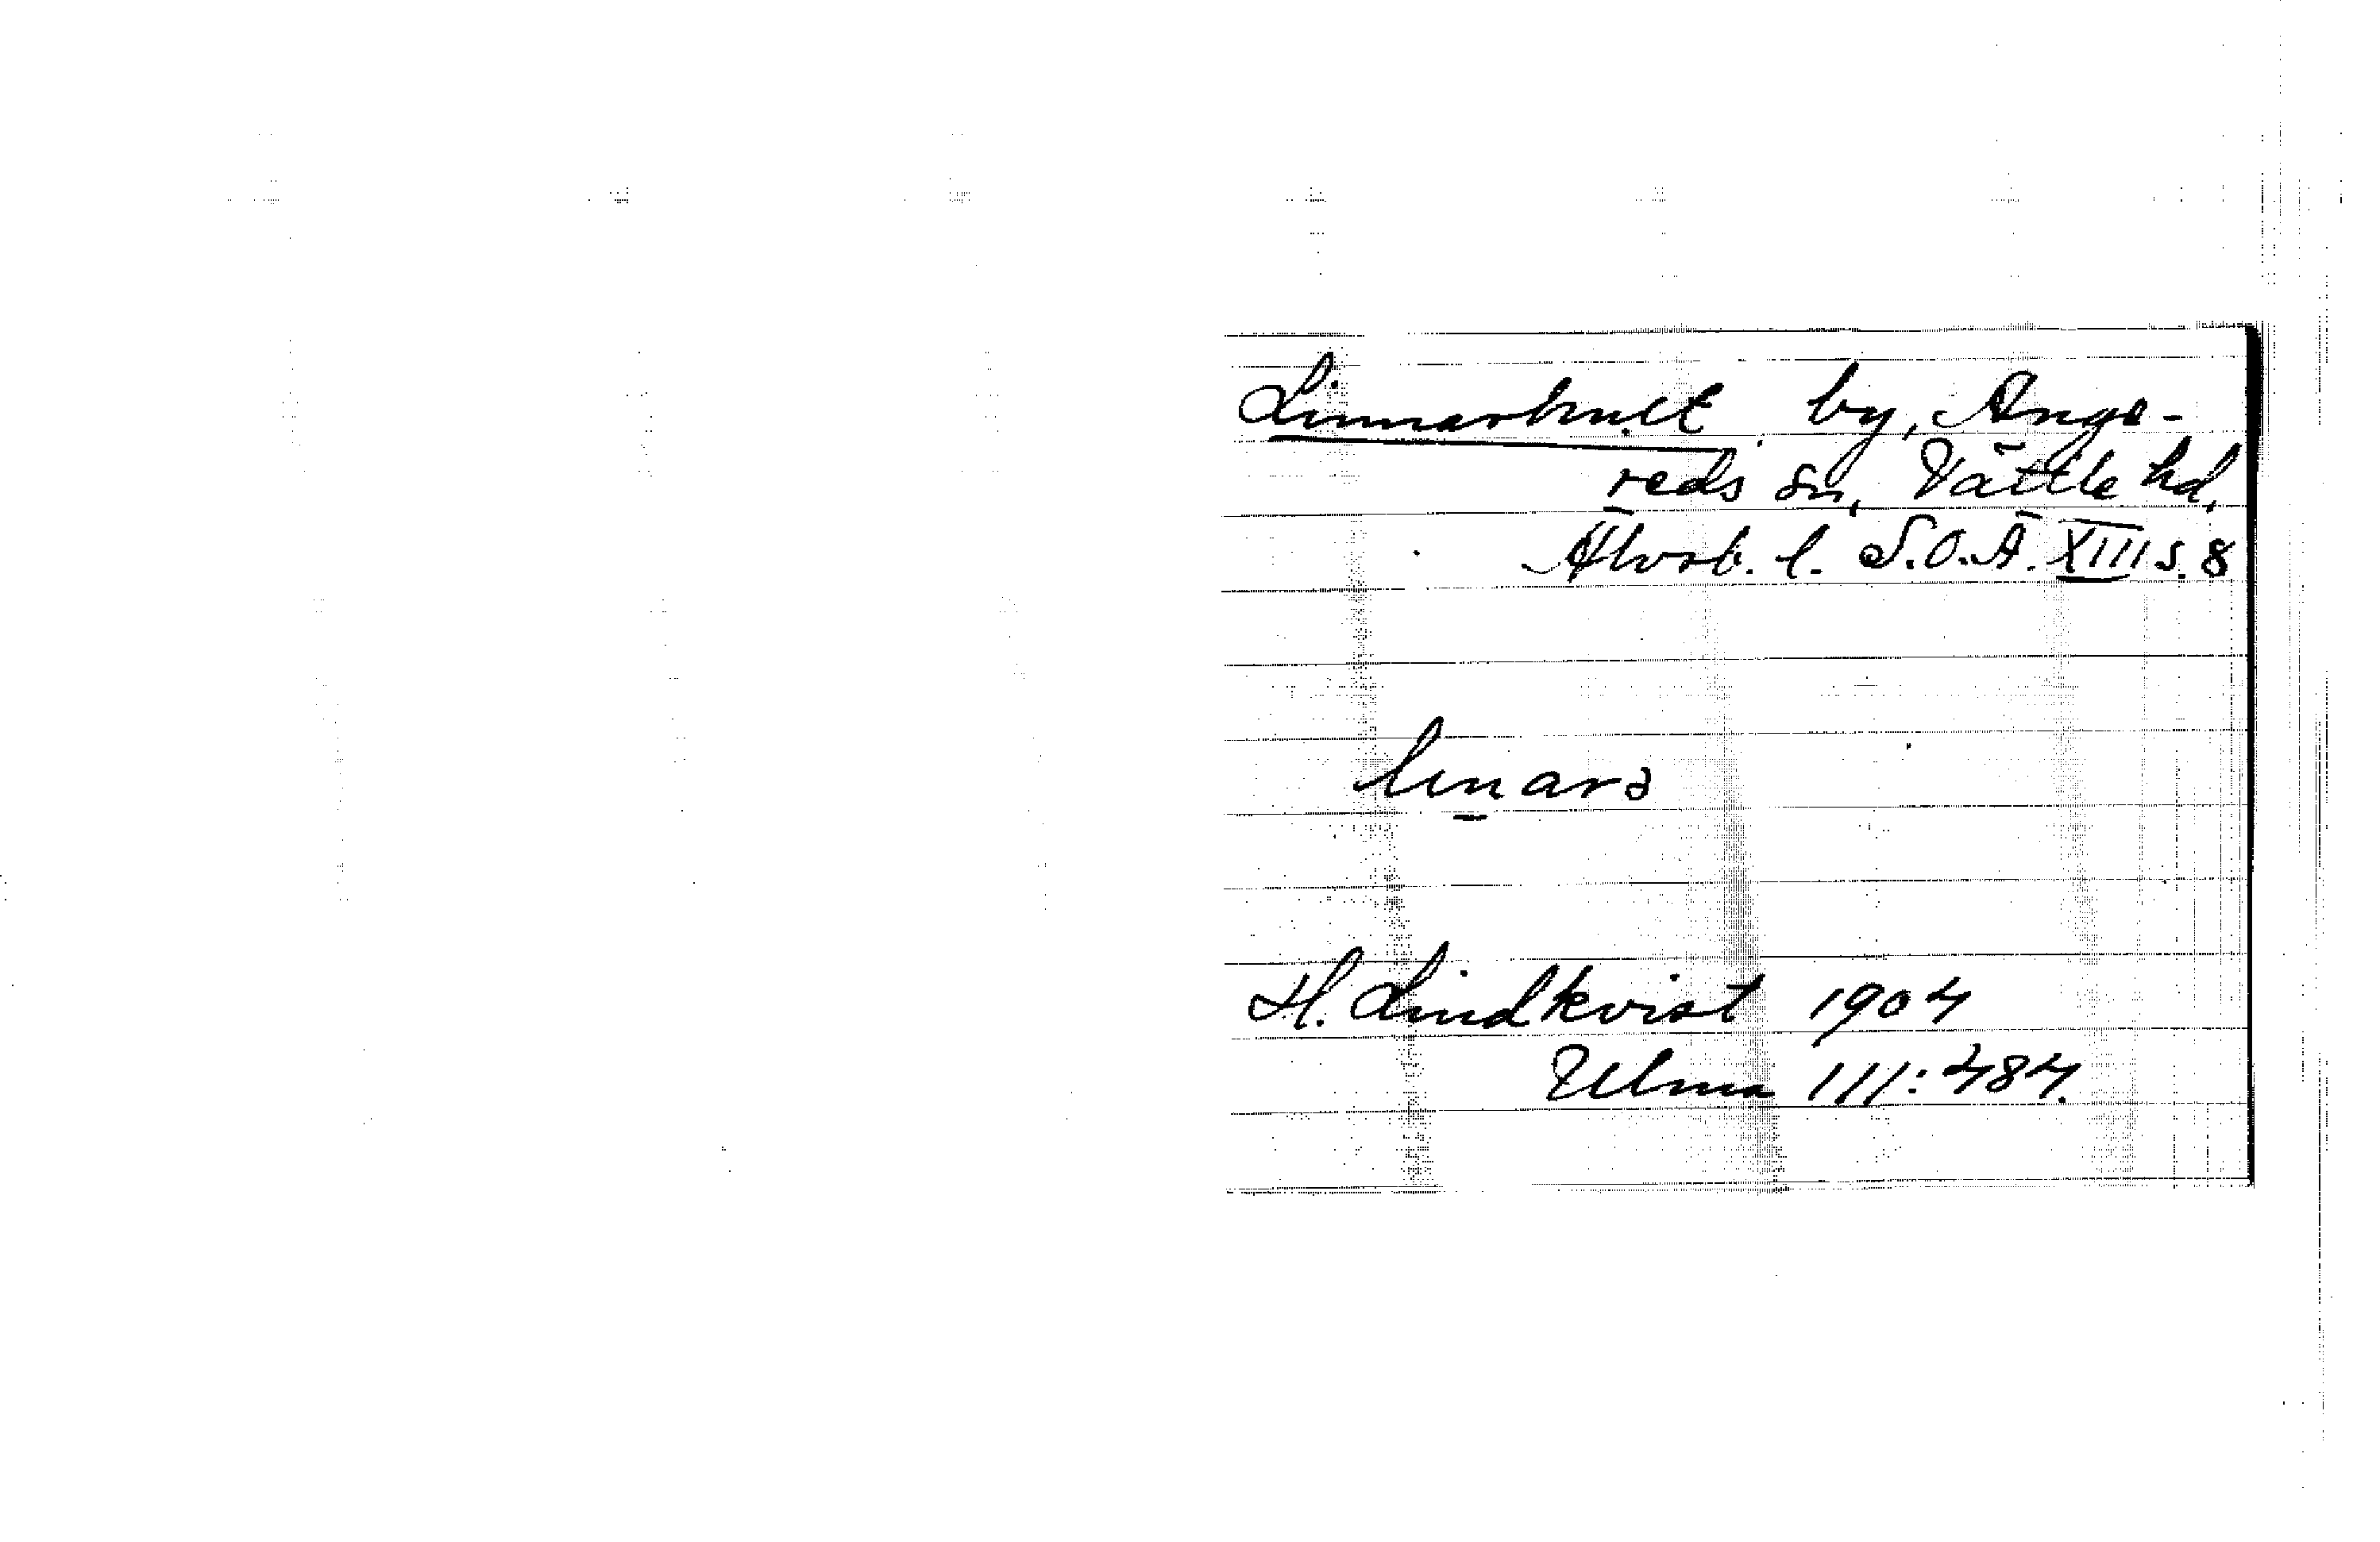 Linnarhult by, Ange-
reds sn, Vättle hd,
Älvsb. l. S.O.Ä. XIII s. 8
linarə
H. Lindkvist 1904
Ulma 111:484.